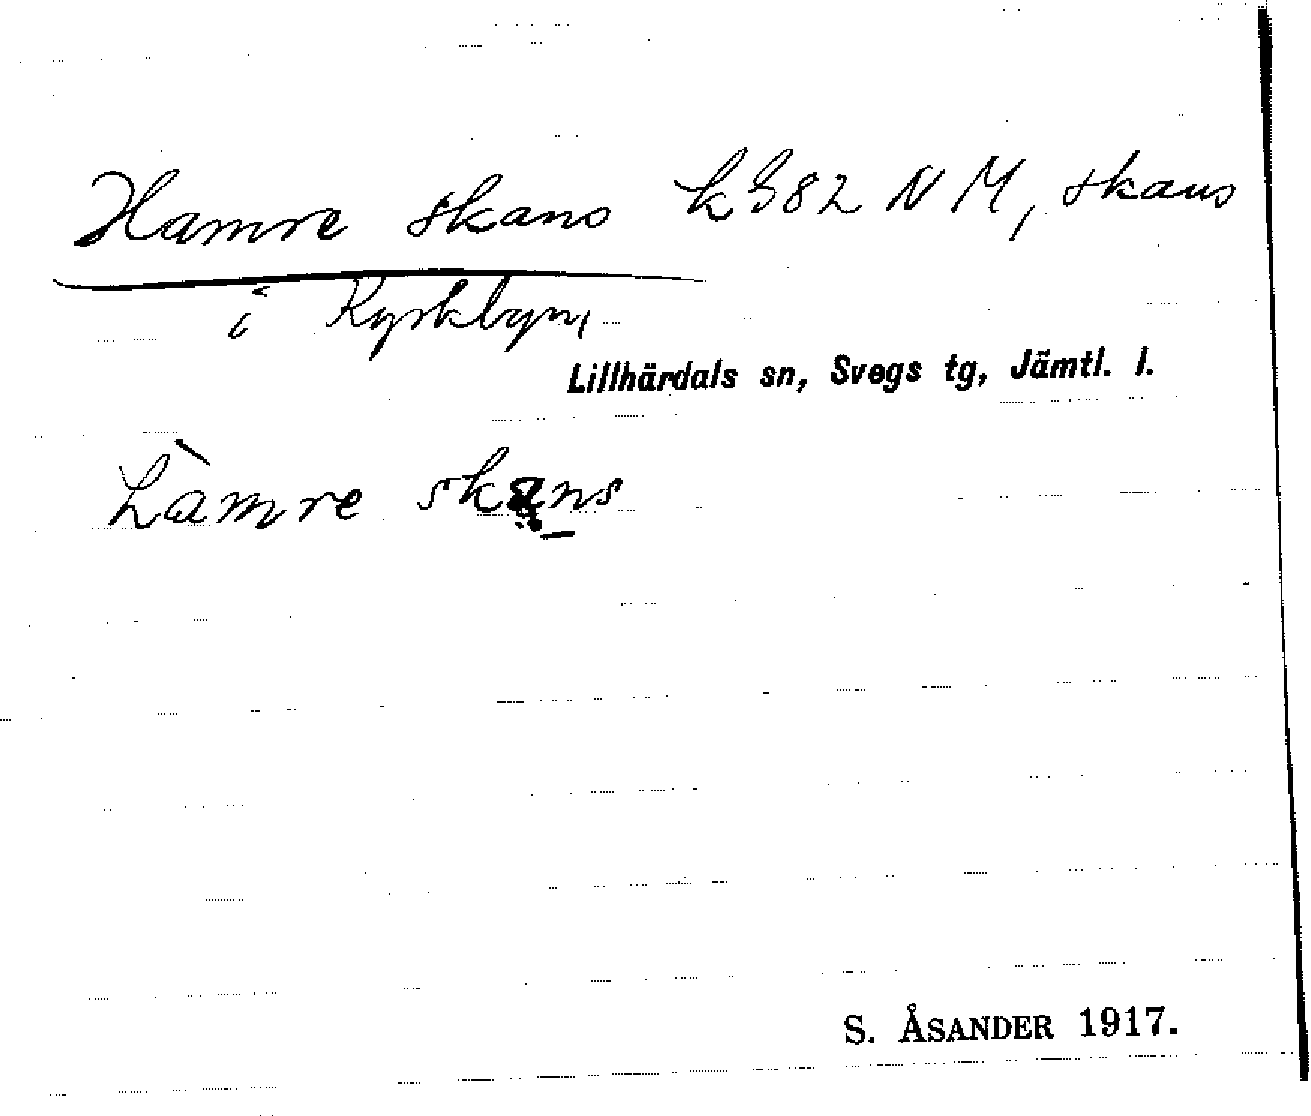 Hamre skans k 382 NM, skans
i Kyrkbyn,
Lillhärdals sn, Svegs tg, Jämtl. l.
hàmre skans
S. ÅSANDER 1917.